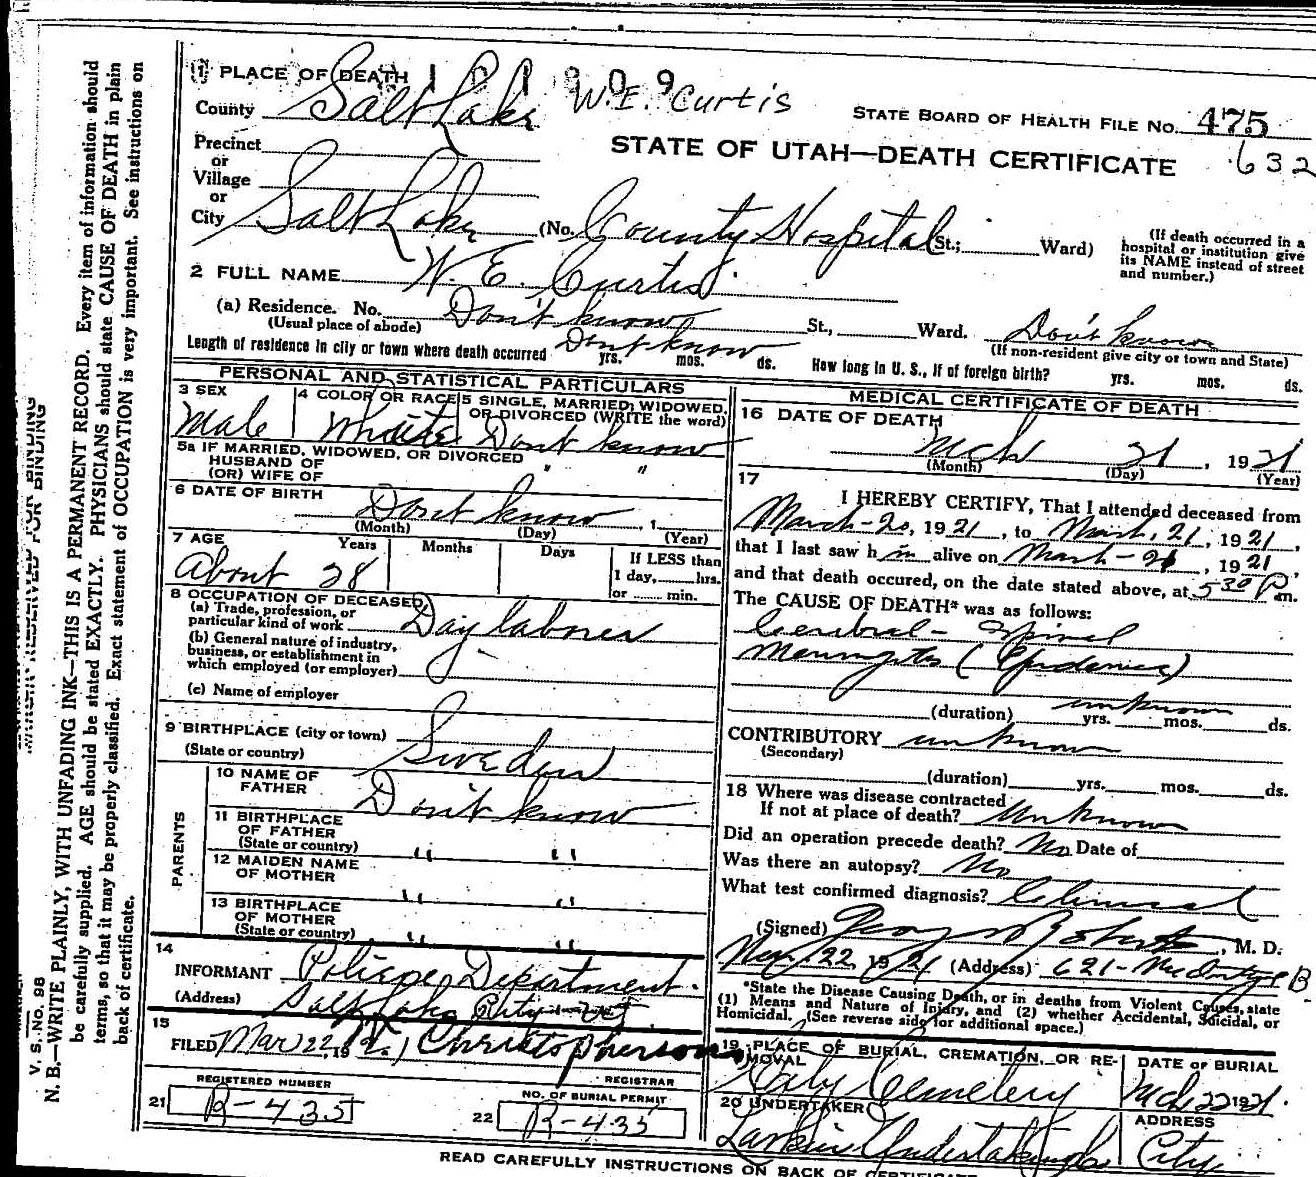 (1) PLACE OF DEATH 1 0 1 9 0 9
W. E. Curtis
County Salt Lake
STATE BOARD OF HEALTH FILE NO. 475
632
STATE OF UTAH—DEATH CERTIFICATE
Precinct
or
Village
or
City Salt Lake (No. County Hospital St.; Ward)
(If death occurred in a hospital or institution give its NAME instead of street and number.)
2 FULL NAME W. E. Curtis.
(a) Residence. No. Don't know St., Ward. Don't know
(Usual place of abode) (If non-resident give city or town and State)
Length of residence in city or town where death occurred Don't know yrs. mos. ds. How long in U. S., if of foreign birth? yrs. mos. ds.
PERSONAL AND STATISTICAL PARTICULARS
3 SEX
Male
4 COLOR OR RACE
White
5 SINGLE, MARRIED, WIDOWED,
OR DIVORCED (WRITE the word)
Don't know
5a IF MARRIED, WIDOWED, OR DIVORCED
HUSBAND OF
(OR) WIFE OF " "
6 DATE OF BIRTH
Don't know , 1
(Month) (Day) (Year)
7 AGE
Years Months Days
If LESS than
1 day, hrs.
or min.
About 28
8 OCCUPATION OF DECEASED
(a) Trade, profession, or
particular kind of work Day laborer
(b) General nature of industry,
business, or establishment in
which employed (or employer)
(c) Name of employer
9 BIRTHPLACE (city or town)
(State or country) Sweden
PARENTS
10 NAME OF
FATHER Don't know
11 BIRTHPLACE
OF FATHER
(State or country) " "
12 MAIDEN NAME
OF MOTHER " "
13 BIRTHPLACE
OF MOTHER
(State or country) " "
14
INFORMANT Police Department.
(Address) Salt Lake City - Ut
15
FILED Mar 22, 19 21, Christopherson
REGISTRAR
REGISTERED NUMBER
21 R-435
NO. OF BURIAL PERMIT
22 R-435
MEDICAL CERTIFICATE OF DEATH
16 DATE OF DEATH
Mch 21, 1921
(Month) (Day) (Year)
17
I HEREBY CERTIFY, That I attended deceased from
March-20, 1921, to March, 21, 1921,
that I last saw him alive on March-21, 1921,
and that death occured, on the date stated above, at 5 30 P. m.
The CAUSE OF DEATH* was as follows:
Cerebral - Spinal
Meningitis (Epidemic)
(duration) unknown yrs. mos. ds.
CONTRIBUTORY unknown
(Secondary)
(duration) yrs. mos. ds.
18 Where was disease contracted
If not at place of death? Unknown
Did an operation precede death? No Date of
Was there an autopsy? No
What test confirmed diagnosis? Clinical
(Signed) Roberts, M. D.
Mar, 22, 1921 (Address) 621-
*State the Disease Causing Death, or in deaths from Violent Causes, state
(1) Means and Nature of Injury, and (2) whether Accidental, Suicidal, or
Homicidal. (See reverse side for additional space.)
19 PLACE OF BURIAL, CREMATION, OR RE-
MOVAL
City Cemetery
DATE OF BURIAL
Mch 22 1921.
20 UNDERTAKER
Larkin Undertaking Co
ADDRESS
City
READ CAREFULLY INSTRUCTIONS ON BACK OF CERTIFICATE
V. S. No. 98
N. B.—WRITE PLAINLY, WITH UNFADING INK—THIS IS A PERMANENT RECORD. Every item of information should
be carefully supplied. AGE should be stated EXACTLY. PHYSICIANS should state CAUSE OF DEATH in plain
terms, so that it may be properly classified. Exact statement of OCCUPATION is very important. See instructions on
back of certificate.
MARGIN RESERVED FOR BINDING